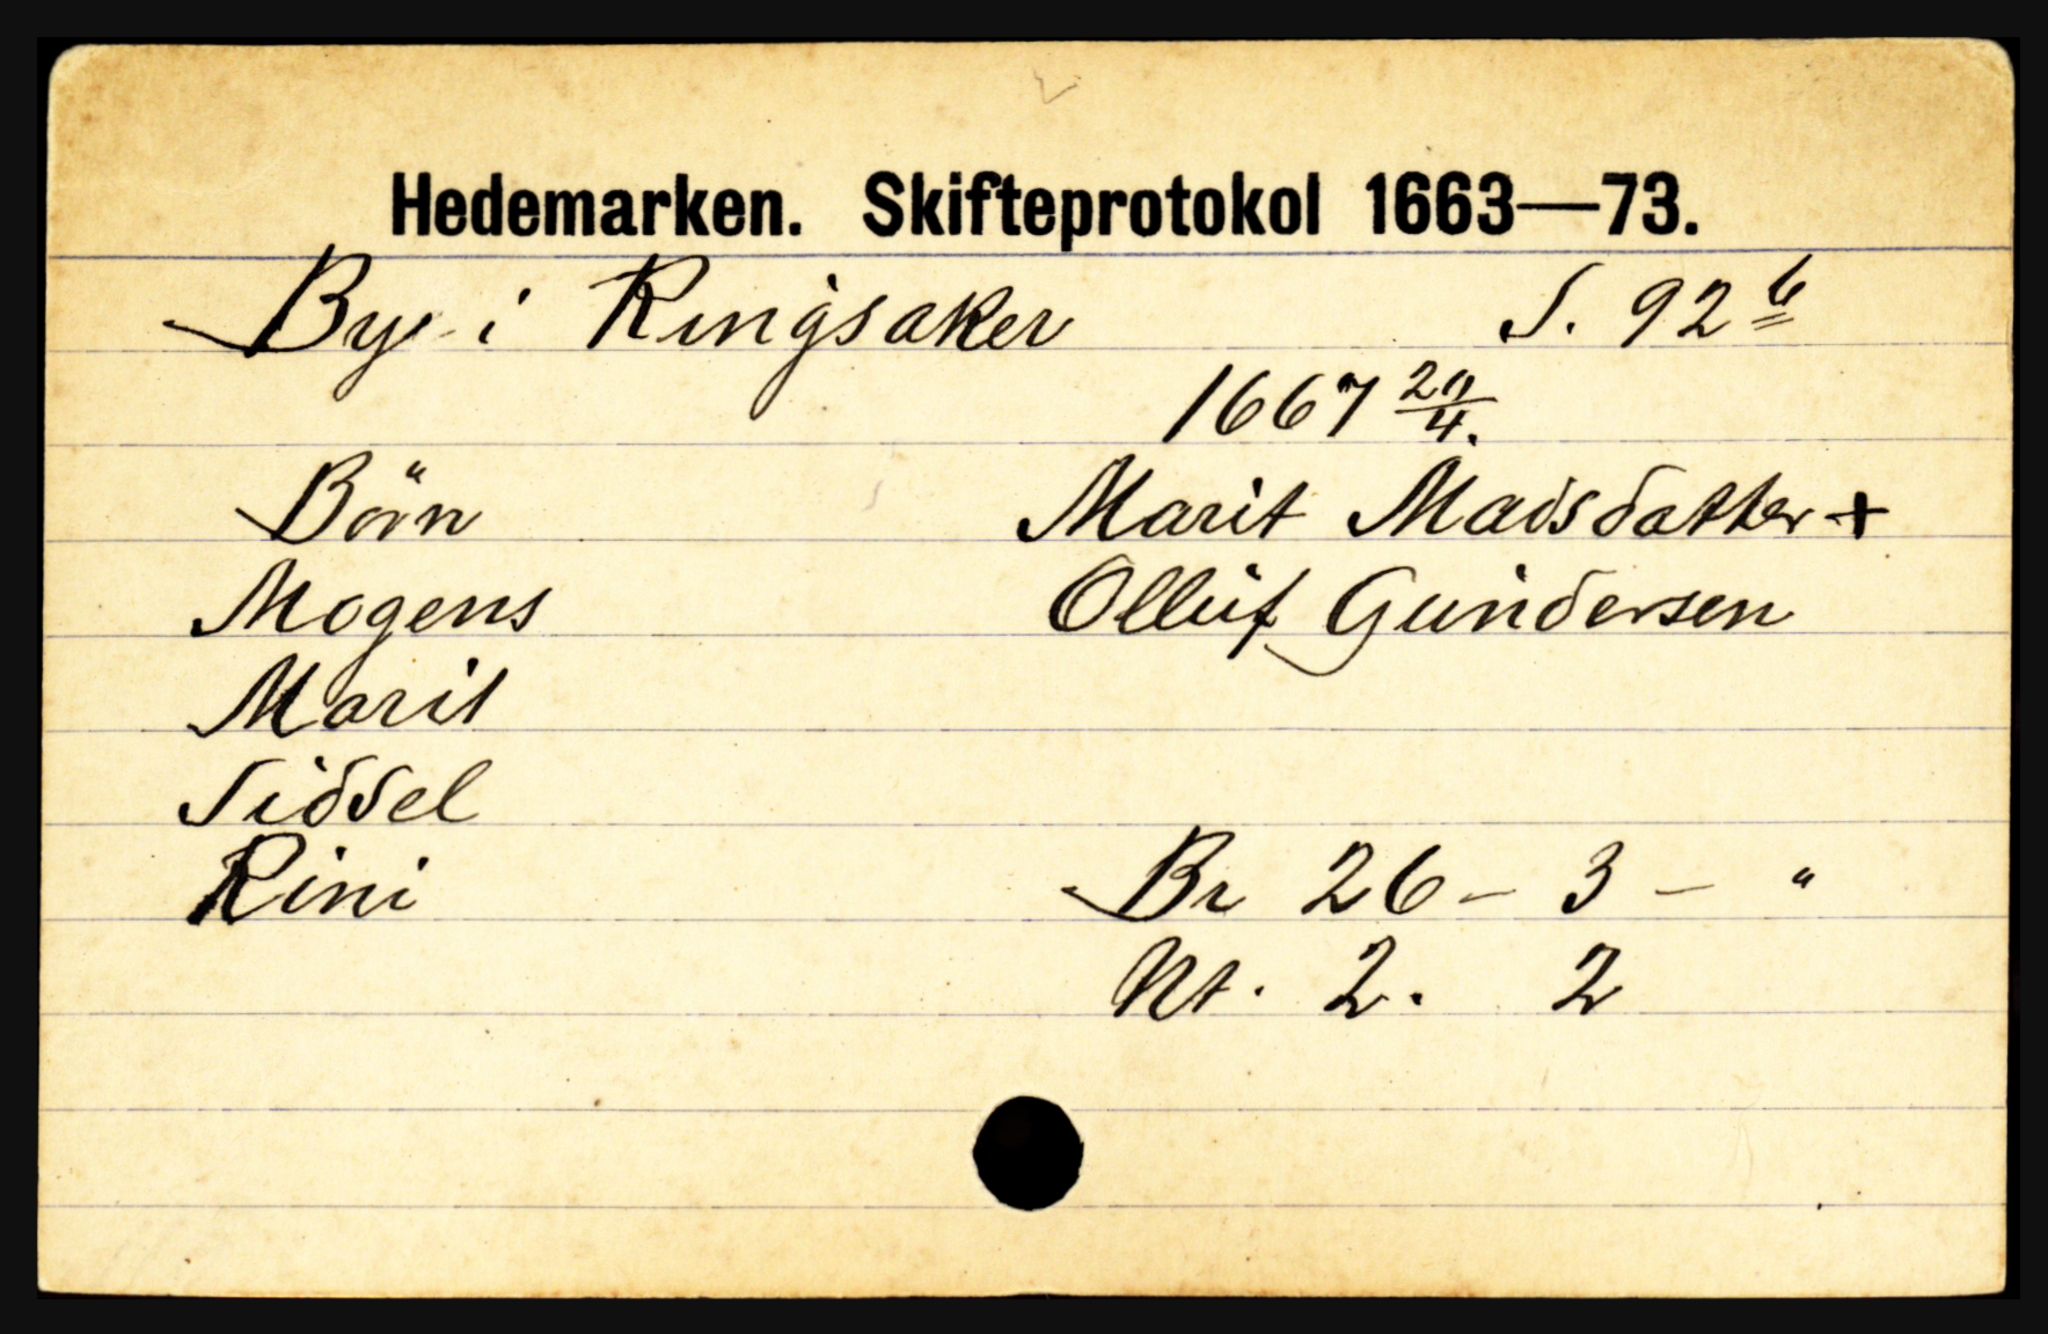 Hedemarken. Skifteprotokol 1663—73.
Bye i Ringsaker S. 92 b
1667 20/4.
Börn Marit Madsdatter +
Mogens Olluf Gundersen
Marit
Sidsel
Rini Br 26 – 3 – "
Nt. 2. 2